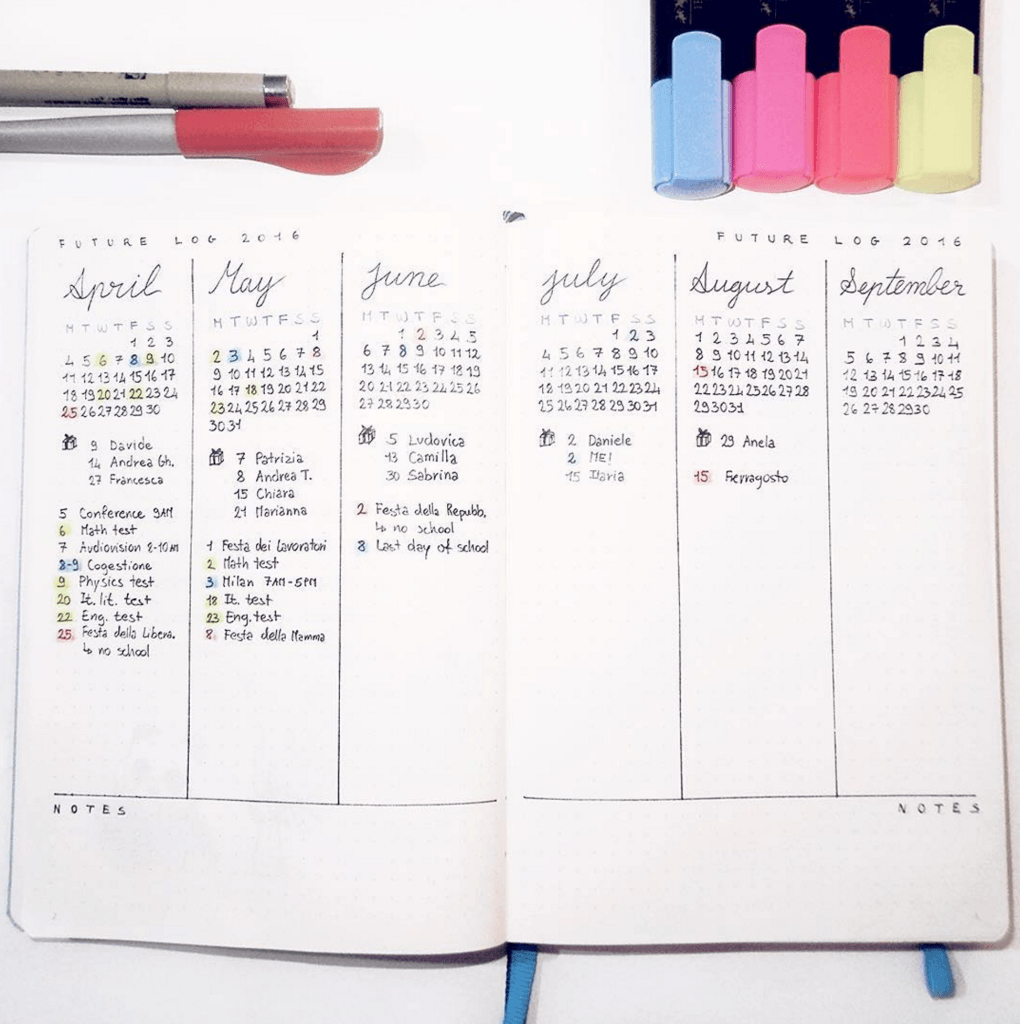 FUTURE LOG 2016
April
M T W T F S S
1 2 3
4 5 6 7 8 9 10
11 12 13 14 15 16 17
18 19 20 21 22 23 24
25 26 27 28 29 30
9 Davide
14 Andrea Gh.
27 Francesca
5 Conference 9AM
6 Math test
7 Audiovision 8-10AM
8-9 Cogestione
9 Physics test
20 It. lit. test
22 Eng. test
25 Festa della Libera.
↳ no school
May
M T W T F S S
1
2 3 4 5 6 7 8
9 10 11 12 13 14 15
16 17 18 19 20 21 22
23 24 25 26 27 28 29
30 31
7 Patrizia
8 Andrea T.
15 Chiara
21 Marianna
1 Festa dei Lavoratori
2 Math test
3 Milan 7AM-5PM
18 It. test
23 Eng. test
8 Festa della Mamma
June
M T W T F S S
1 2 3 4 5
6 7 8 9 10 11 12
13 14 15 16 17 18 19
20 21 22 23 24 25 26
27 28 29 30
5 Ludovica
13 Camilla
30 Sabrina
2 Festa della Repubb.
↳ no school
8 Last day of school
NOTES
FUTURE LOG 2016
July
M T W T F S S
1 2 3
4 5 6 7 8 9 10
11 12 13 14 15 16 17
18 19 20 21 22 23 24
25 26 27 28 29 30 31
2 Daniele
2 ME!
15 Ilaria
August
M T W T F S S
1 2 3 4 5 6 7
8 9 10 11 12 13 14
15 16 17 18 19 20 21
22 23 24 25 26 27 28
29 30 31
29 Anela
15 Ferragosto
September
M T W T F S S
1 2 3 4
5 6 7 8 9 10 11
12 13 14 15 16 17 18
19 20 21 22 23 24 25
26 27 28 29 30
NOTES